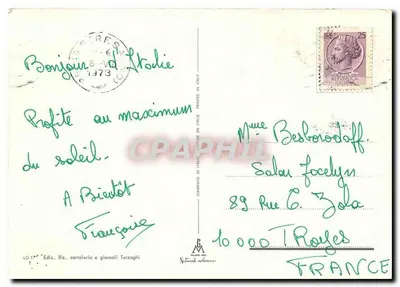 Bonjour d'Italie
Profite au maximum
du soleil.
A Bientôt
Françoise
1973
25
Mme Besborodoff.
Salon Jocelyn
89 Rue E. Zola
10 000 TRoyes
FRANCE
CPAPHIL
Ediz. Ris. cartoleria e giornali Terzaghi